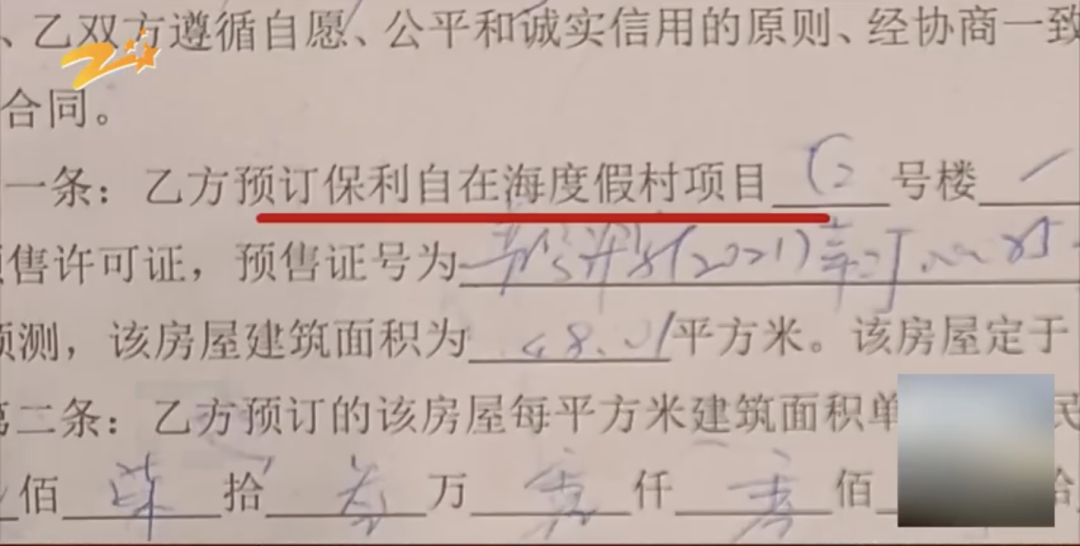 、乙双方遵循自愿、公平和诚实信用的原则、经协商一致
合同。
一条：乙方预订保利自在海度假村项目 号楼
售许可证，预售证号为 (2021)
预测，该房屋建筑面积为 48.01 平方米。该房屋定于
第二条：乙方预订的该房屋每平方米建筑面积单 民
佰 拾 万 仟 佰